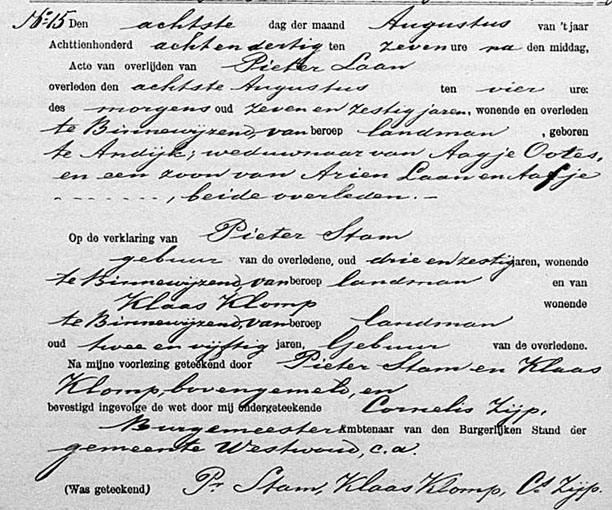 No. 15 Den achtste dag der maand Augustus van 't jaar
Achttienhonderd acht en dertig ten zeven ure na den middag,
Acte van overlijden van Pieter Laan
overleden den achtste Augustus ten vier ure:
des morgens oud zeven en zestig jaren, wonende en overleden
te Binnewijzend, van beroep landman, geboren
te Andijk; weduwnaar van Aagje Ootes,
en een zoon van Arien Laan en Aafje
- - - - - - - , beide overleden. -
Op de verklaring van Pieter Stam
gebuur van de overledene, oud drie en zestig jaren, wonende
te Binnewijzend, van beroep landman en van
Klaas Klomp wonende
te Binnewijzend, van beroep landman
oud twee en vijftig jaren, Gebuur van de overledene.
Na mijne voorlezing geteekend door Pieter Stam en Klaas
Klomp, bovengemeld, en
bevestigd ingevolge de wet door mij ondergeteekende Cornelis Zijp,
Burgemeester Ambtenaar van den Burgerlijken Stand der
gemeente Westwoud, c.a.
(Was geteekend) Pr Stam, Klaas Klomp, Cs Zijp.